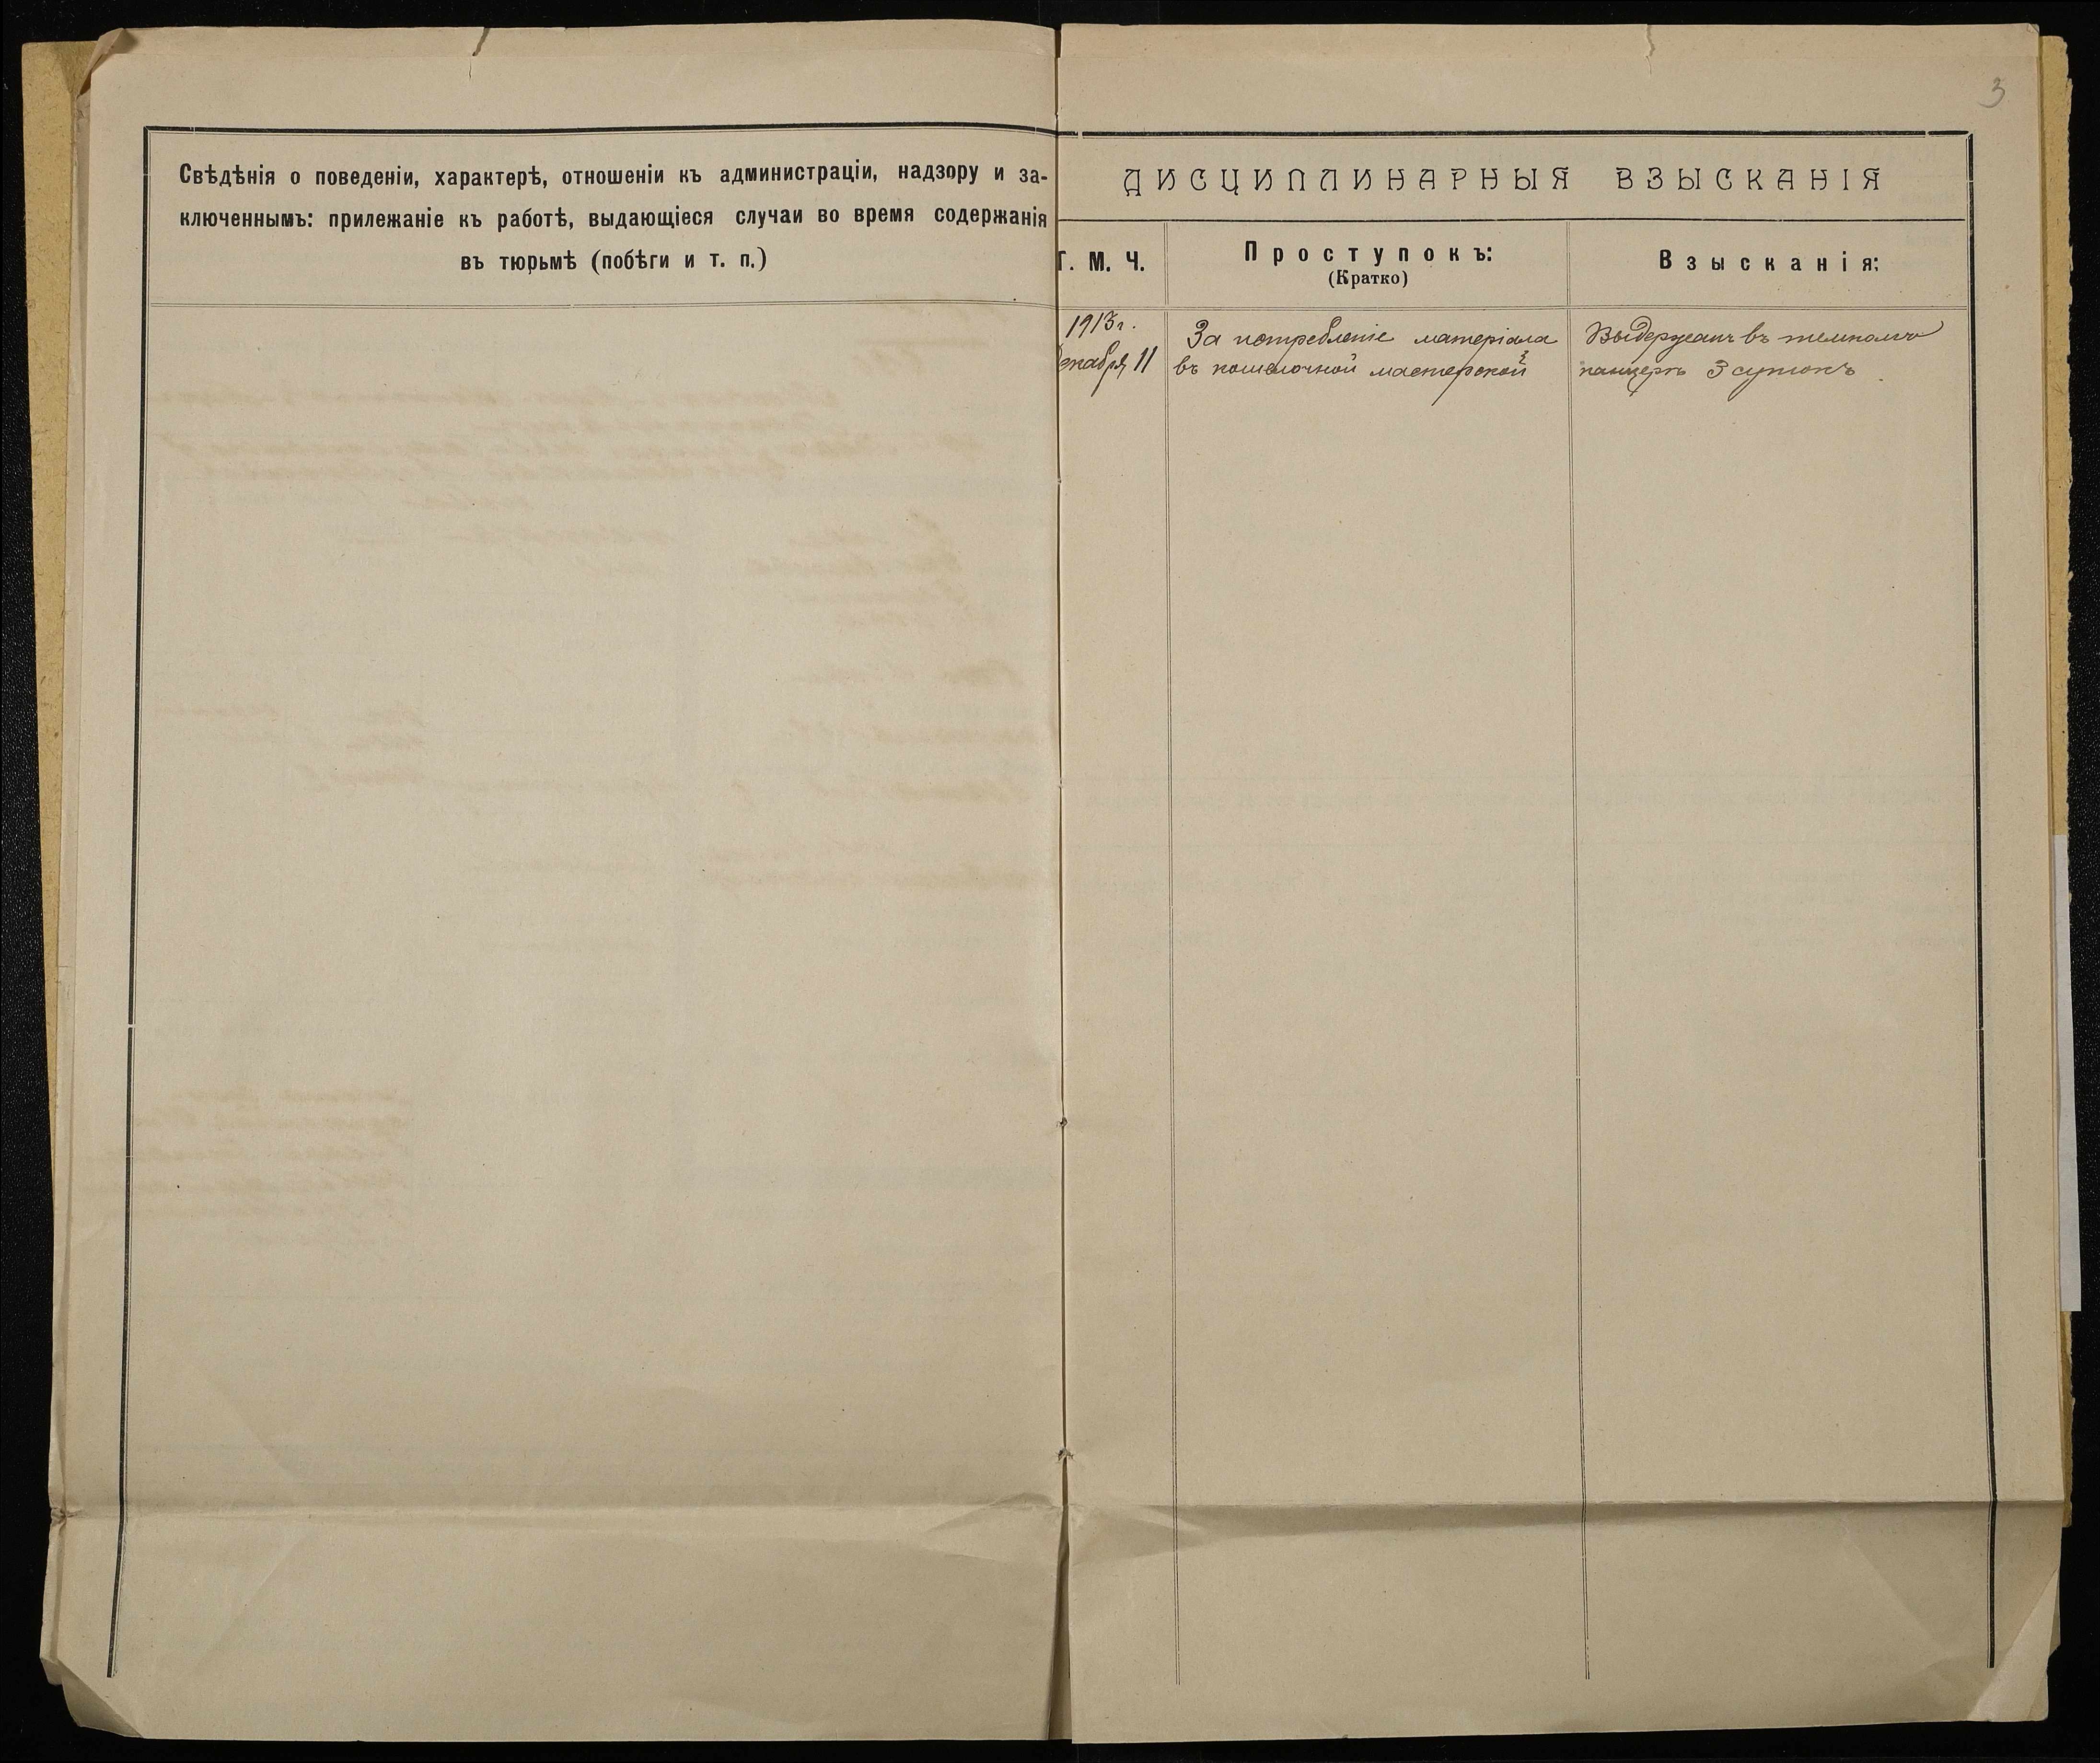 3
Свѣдѣнія о поведеніи, характерѣ, отношеніи къ администраціи, надзору и за-
ключеннымъ: прилежаніе къ работѣ, выдающіеся случаи во время содержанія
въ тюрьмѣ (побѣги и т. п.)
ДИСЦИПЛИНАРНЫЯ ВЗЫСКАНІЯ
Г. М. Ч.
Проступокъ:
(Кратко)
Взысканія:
1913 г.
декабря 11
За потребленіе матеріала
въ кошелочной мастерской
Выдержанъ въ темномъ
карцерѣ 3 сутокъ